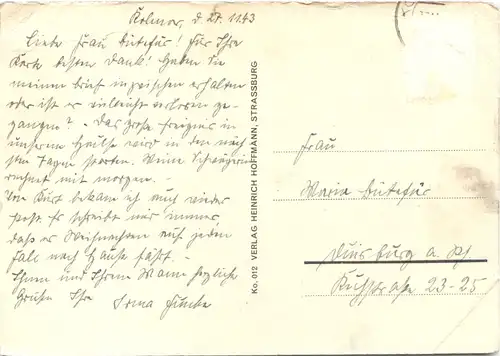 Kolmar, d. 27. 11. 43
Liebe Frau Bütefür! Für Ihre
Karte besten Dank! Haben Sie
meinen Brief inzwischen erhalten
oder ist er vielleicht verloren ge-
gangen? - Das große Ereignis in
unserem Hause wird in den näch-
sten Tagen starten. Meine Schwägerin
rechnet mit morgen. -
Von Kurt bekam ich auch wieder
Post. Er schreibt nur immer,
daß er Weihnachten auf jeden
Fall nach Hause fährt. -
Ihnen und Ihrem Mann herzliche
Grüße Ihre
Irma
Ko. 012 VERLAG HEINRICH HOFFMANN, STRASSBURG
Frau
Maria Bütefür
Duisburg a. Rh
Kuhstraße 23-25